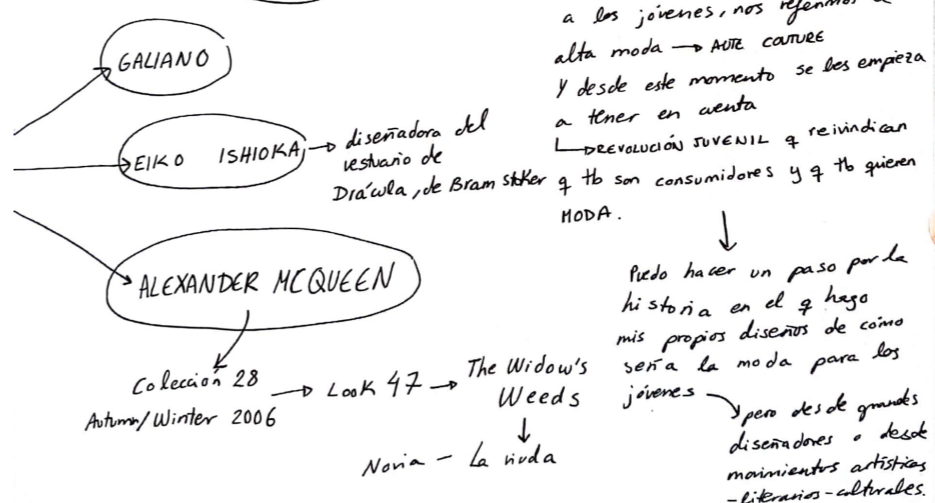 GALIANO
EIKO ISHIOKA
diseñadora del
vestuario de
Drácula, de Bram Stoker
ALEXANDER MCQUEEN
Colección 28
Autumn/Winter 2006
Look 47
The Widow's
Weeds
Novia - La viuda
a los jóvenes, nos referimos a
alta moda → AUTE COUTURE
Y desde este momento se les empieza
a tener en cuenta
REVOLUCIÓN JUVENIL q reivindican
q tb son consumidores y q tb quieren
MODA.
Puedo hacer un paso por la
historia en el q hago
mis propios diseños de cómo
sería la moda para los
jóvenes
pero desde grandes
diseñadores o desde
movimientos artísticos
-literarios-culturales.